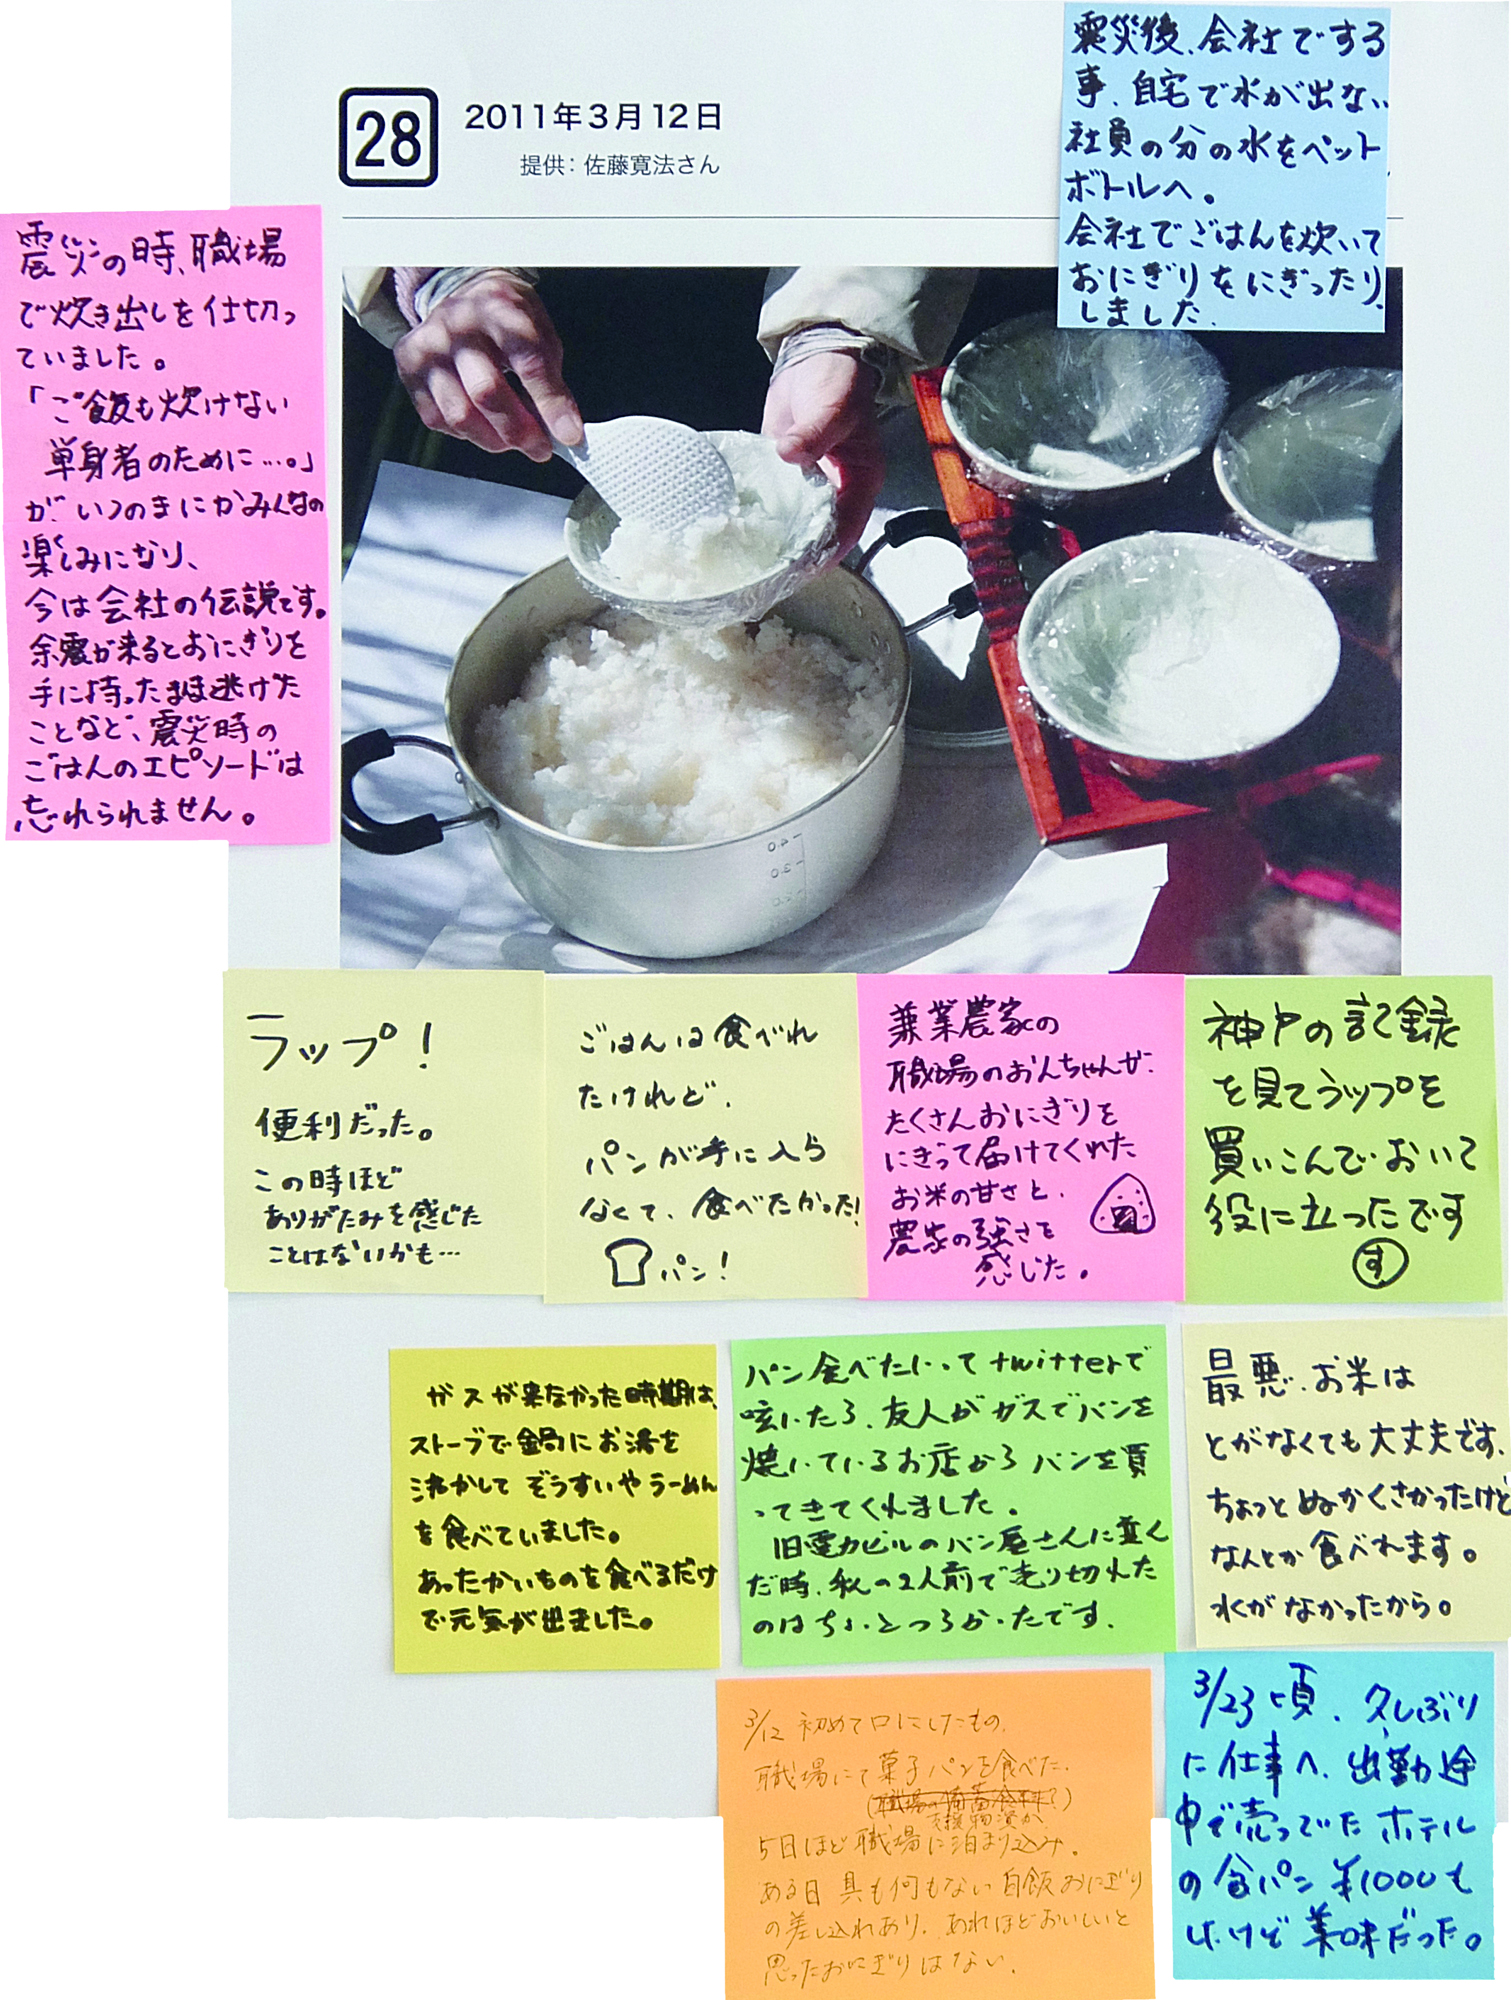 28
2011年3月12日
提供：佐藤寛法さん
震災後、会社でする
事、自宅で水が出ない
社員の分の水をペット
ボトルへ。
会社でごはんを炊いて
おにぎりをにぎったり
しました。
震災の時、職場
で炊き出しを仕切っ
ていました。
「ご飯も炊けない
単身者のために…。」
が、いつのまにかみんなの
楽しみになり、
今は会社の伝説です。
余震が来るとおにぎりを
手に持ったまま逃げた
ことなど、震災時の
ごはんのエピソードは
忘れられません。
ラップ！
便利だった。
この時ほど
ありがたみを感じた
ことはないかも…
ごはんは食べれ
たけれど、
パンが手に入ら
なくて、食べたかった！
パン！
兼業農家の
職場のおんちゃんが、
たくさんおにぎりを
にぎって届けてくれた
お米の甘さと、
農家の強さを
感じた。
神戸の記録
を見てラップを
買いこんでおいて
役に立ったです
す
ガスが来なかった時期は、
ストーブで鍋にお湯を
沸かして ぞうすいやラーめん
を食べていました。
あったかいものを食べるだけ
で元気が出ました。
パン食べたいってtwitterで
呟いたら、友人がガスでパンを
焼いているお店からパンを買
ってきてくれました。
旧電力ビルのパン屋さんに並ん
だ時、私の2人前で売り切れた
のはちょっとつらかったです。
最悪、お米は
とがなくても大丈夫です、
ちょっとぬかくさかったけど
なんとか食べれます。
水がなかったから。
3/12 初めて口にしたもの、
職場にて菓子パンを食べた、
(職場の備蓄食料？)
支援物資か
5日ほど職場に泊まり込み。
ある日 具も何もない白飯おにぎり
の差し入れあり、あれほどおいしいと
思ったおにぎりはない。
3/23頃、久しぶり
に仕事へ、出勤途
中で売っていたホテル
の食パン ¥1000も
したけど美味だった。